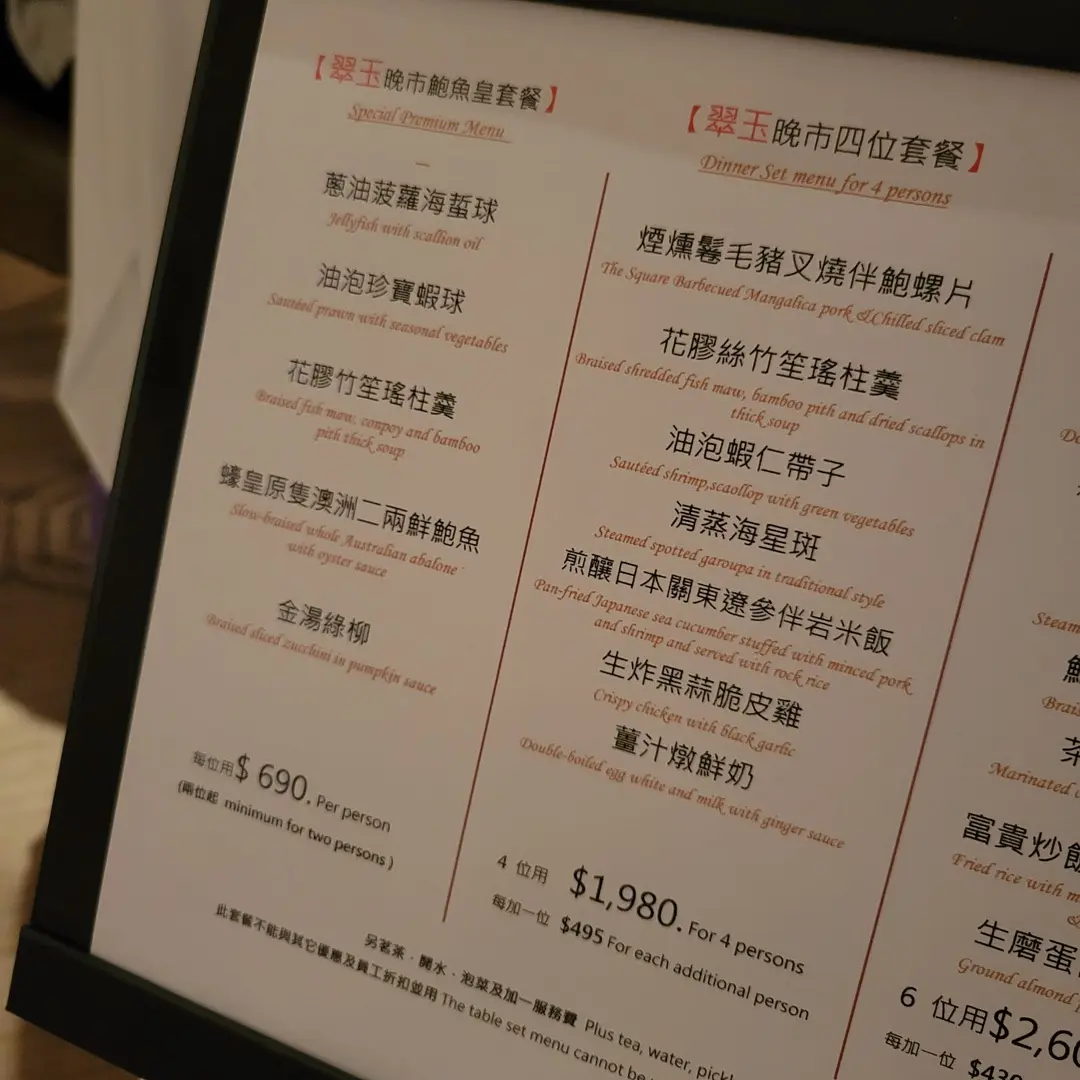 【翠玉晚市鮑魚皇套餐】
Special Premium Menu
蔥油菠蘿海蜇球
Jellyfish with scallion oil
油泡珍寶蝦球
Sautéed prawn with seasonal vegetables
花膠竹笙瑤柱羹
Braised fish maw, conpoy and bamboo
pith thick soup
蠔皇原隻澳洲二兩鮮鮑魚
Slow-braised whole Australian abalone
with oyster sauce
金湯綠柳
Braised sliced zucchini in pumpkin sauce
每位用$ 690. Per person
(兩位起 minimum for two persons )
【翠玉晚市四位套餐】
Dinner Set menu for 4 persons
煙燻鬈毛豬叉燒伴鮑螺片
The Square Barbecued Mangalica pork &Chilled sliced clam
花膠絲竹笙瑤柱羹
Braised shredded fish maw, bamboo pith and dried scallops in
thick soup
油泡蝦仁帶子
Sautéed shrimp,scaollop with green vegetables
清蒸海星斑
Steamed spotted garoupa in traditional style
煎釀日本關東遼參伴岩米飯
Pan-fried Japanese sea cucumber stuffed with minced pork
and shrimp and served with rock rice
生炸黑蒜脆皮雞
Crispy chicken with black garlic
薑汁燉鮮奶
Double-boiled egg white and milk with ginger sauce
4 位用 $1,980. For 4 persons
每加一位 $495 For each additional person
Steam
Brais
茶
Marinated
富貴炒飯
Fried rice with m
&
生磨蛋
Ground almond
6 位用$2,60
每加一位 $430
另茗茶．開水．泡菜及加一服務費 Plus tea, water, pickl
此套餐不能與其它優惠及員工折扣並用 The table set menu cannot be